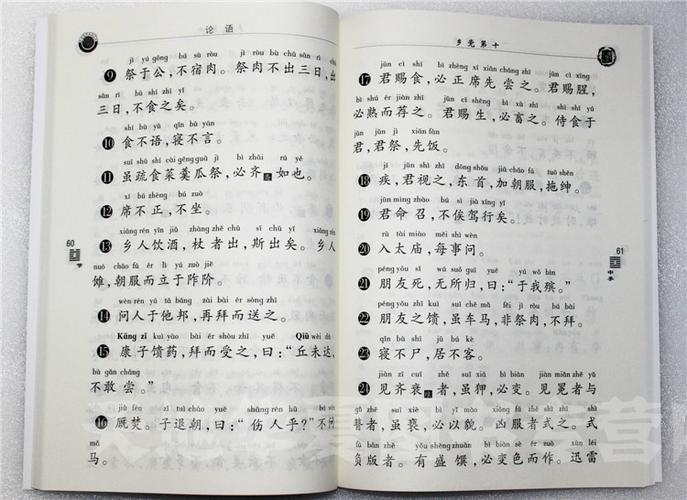 论语
jì yú gōng bú sù ròu jì ròu bù chū sān rì chū
9 祭于公，不宿肉。祭肉不出三日，出
sān rì bù shí zhī yǐ
三日，不食之矣。
shí bù yǔ qǐn bù yán
10 食不语，寝不言。
suī shū shí cài gēng guā jì bì zhāi rú yě
11 虽疏食菜羹瓜祭，必齐如也。
xí bú zhèng bú zuò
12 席不正，不坐。
xiāng rén yǐn jiǔ zhàng zhě chū sī chū yǐ xiāng rén
13 乡人饮酒，杖者出，斯出矣。乡人
nuó cháo fú ér lì yú zuò jiē
傩，朝服而立于阼阶。
wèn rén yú tā bāng zài bài ér sòng zhī
14 问人于他邦，再拜而送之。
Kāng zǐ kuì yào bài ér shòu zhī yuē Qiū wèi dá
15 康子馈药，拜而受之，曰：“丘未达，
bù gǎn cháng
不敢尝。”
jiù fén zǐ tuì cháo yuē shāng rén hū bú
16 厩焚。子退朝，曰：“伤人乎？”不
mǎ
马。
60
乡党第十
jūn cì shí bì zhèng xí xiān cháng zhī jūn cì xīng
17 君赐食，必正席先尝之。君赐腥，
bì shú ér jiàn zhī jūn cì shēng bì xù zhī shì shí yú
必熟而荐之。君赐生，必畜之。侍食于
jūn jūn jì xiān fàn
君，君祭，先饭。
jí jūn shì zhī dōng shǒu jiā cháo fú tuō shēn
18 疾，君视之，东首，加朝服，拖绅。
jūn mìng zhào bú sì jià xíng yǐ
19 君命召，不俟驾行矣。
rù tài miào měi shì wèn
20 入太庙，每事问。
péng yǒu sǐ wú suǒ guī yuē yú wǒ bìn
21 朋友死，无所归，曰：“于我殡。”
péng yǒu zhī kuì suī chē mǎ fēi jì ròu bú bài
22 朋友之馈，虽车马，非祭肉，不拜。
qǐn bù shī jū bú kè
23 寝不尸，居不客。
jiàn zī cuī zhě suī xiá bì biàn jiàn miǎn zhě yǔ
24 见齐衰者，虽狎，必变。见冕者与
gǔ zhě suī xiè bì yǐ mào xiōng fú zhě shì zhī shì
瞽者，虽亵，必以貌。凶服者式之。式
fù bǎn zhě yǒu shèng zhuàn bì biàn sè ér zuò xùn léi
负版者。有盛馔，必变色而作。迅雷
61